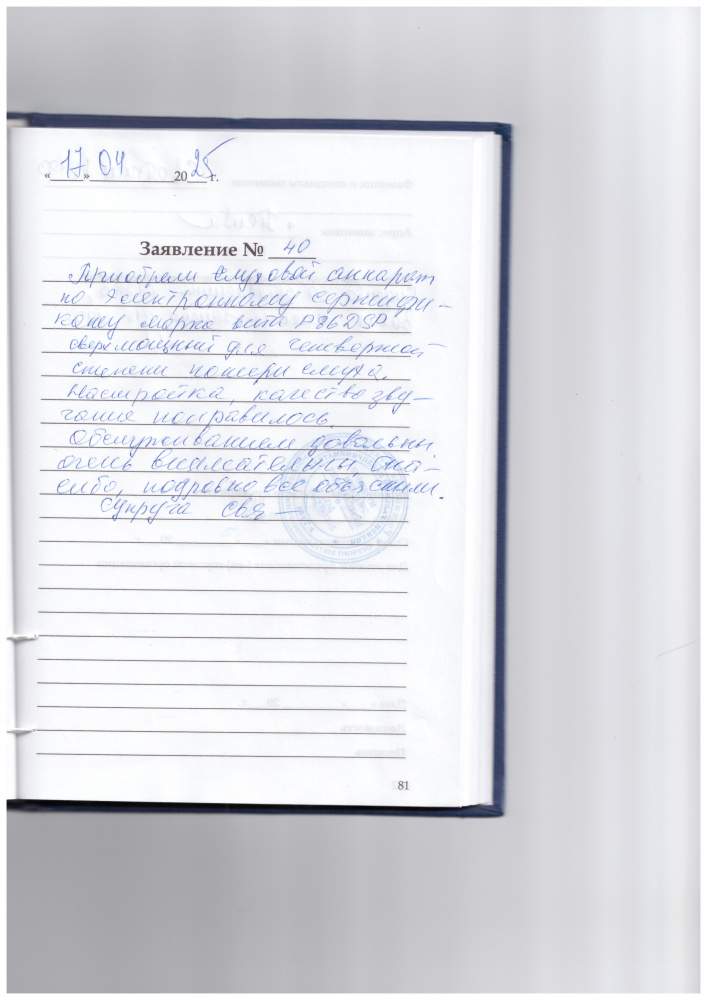 «17» 04 2025 г.
Заявление № 40
Приобрели слуховой аппарат
по электронному сертифи-
кату марка вита P86DSP
сверхмощный для четвертой
степени потери слуха.
Настройка, качество зву-
чания понравилось.
Обслуживанием довольны
очень внимательны, спа-
сибо, подробно все объяснили.
Супруга
81